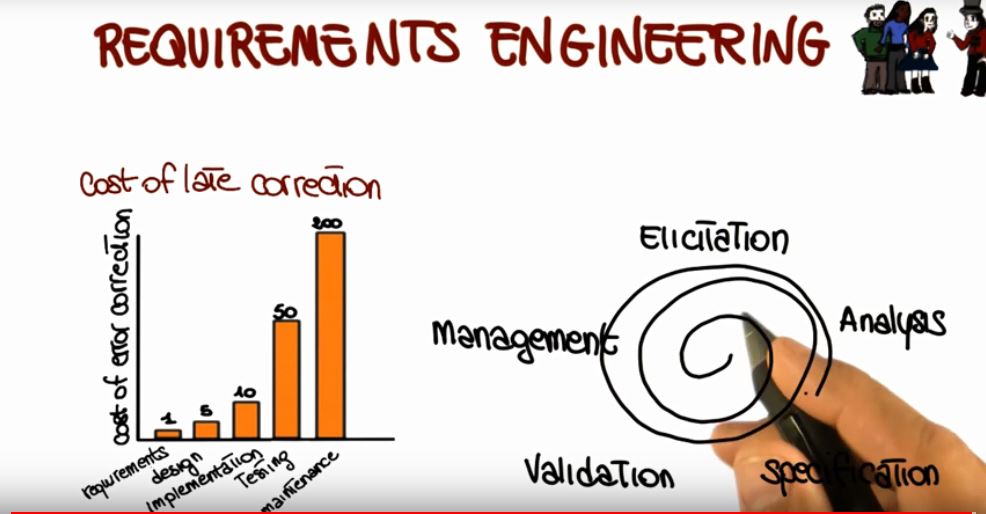 REQUIREMENTS ENGINEERING
Cost of late correction
cost of error correction
1
5
10
50
200
requirements
design
Implementation
Testing
maintenance
Elicitation
Management
Analysis
Validation
Specification